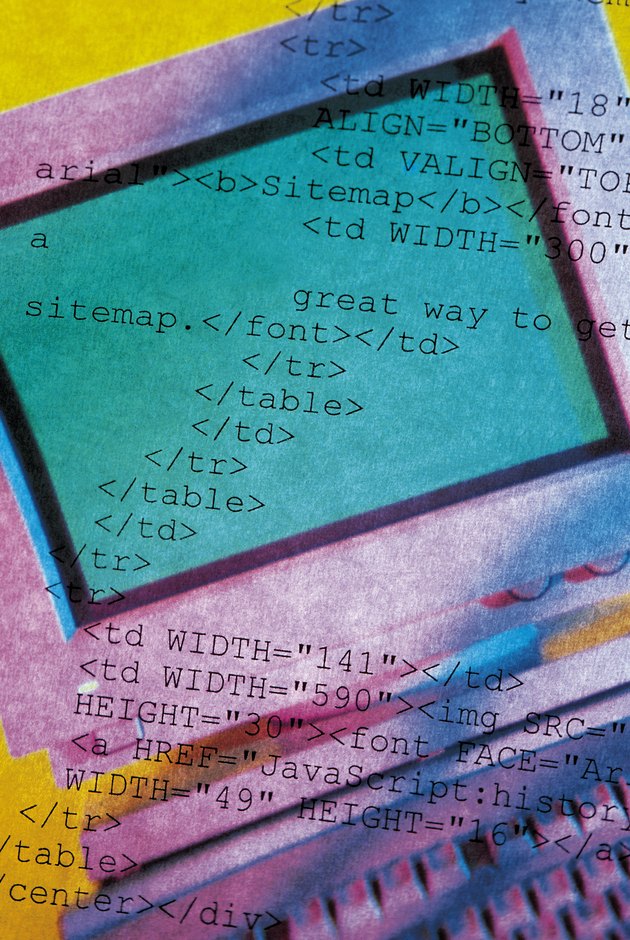 </tr>
<tr>
<td WIDTH="18"
ALIGN="BOTTOM"
<td VALIGN="TOP
arial"><b>Sitemap</b></font
<td WIDTH="300"
a
great way to get
sitemap.</font></td>
</tr>
</table>
</td>
</tr>
</table>
</td>
</tr>
<tr>
<td WIDTH="141"></td>
<td WIDTH="590"><img SRC="
HEIGHT="30"><font FACE="Ar
<a HREF="JavaScript:history
WIDTH="49" HEIGHT="16"></a>
</tr>
/table>
/center></div>